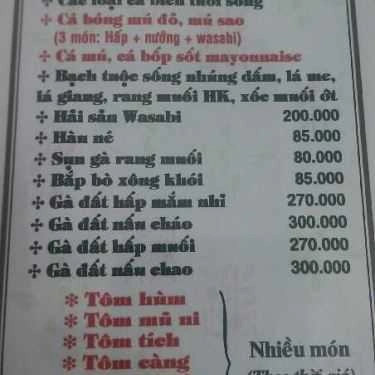 ✢ Các loại cá biển tươi sống
✢ Cá bóng mú đỏ, mú sao
(3 món: Hấp + nướng + wasabi)
✢ Cá mú, cá bớp sốt mayonnaise
✢ Bạch tuộc sống nhúng dấm, lá me,
lá giang, rang muối HK, xốc muối ớt
✢ Hải sản Wasabi 200.000
✢ Hàu né 85.000
✢ Sụn gà rang muối 80.000
✢ Bắp bò xông khói 85.000
✢ Gà đất hấp mắm nhỉ 270.000
✢ Gà đất nấu cháo 300.000
✢ Gà đất hấp muối 270.000
✢ Gà đất nấu chao 300.000
* Tôm hùm
* Tôm mũ ni
* Tôm tích
* Tôm càng
Nhiều món
(Theo thời giá)